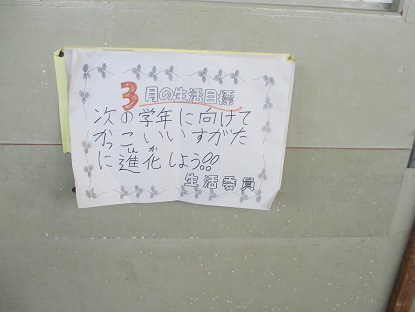 3月の生活目標
次の学年に向けて
かっこいいすがた
に進化しよう!!
しんか
生活委員